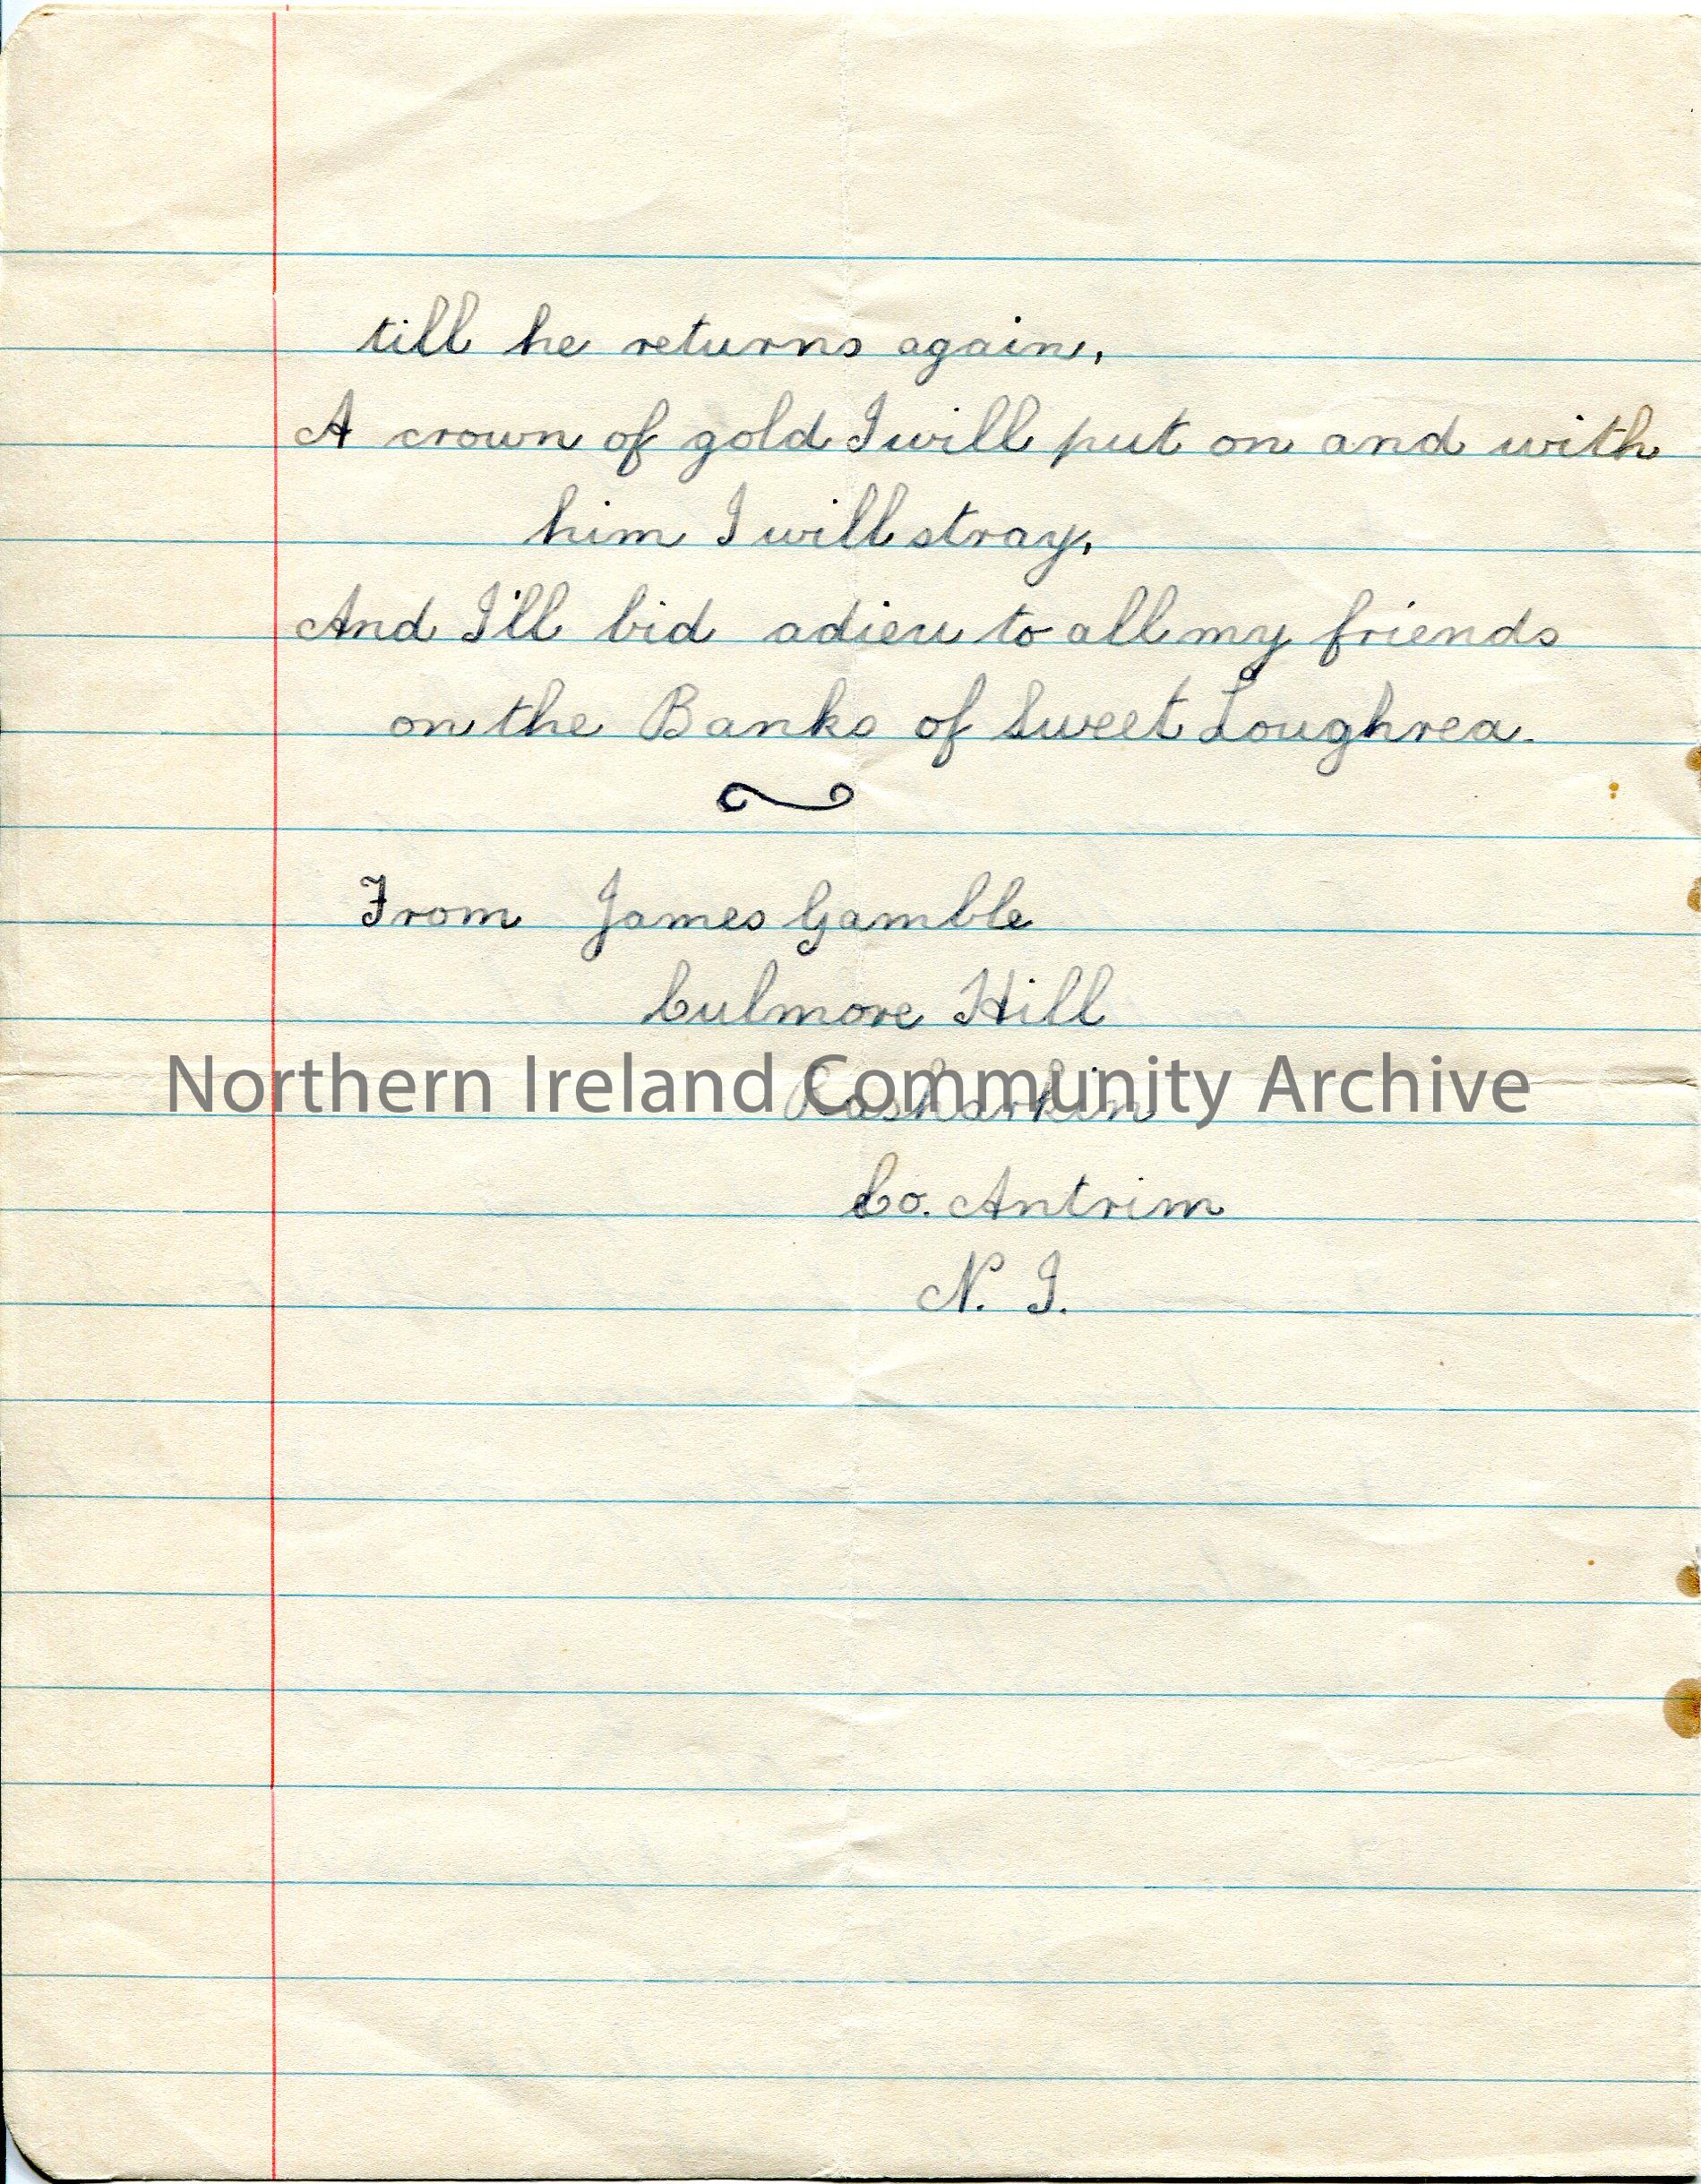 till he returns again,
A crown of gold I will put on and with
him I will stray,
And I'll bid adieu to all my friends
on the Banks of Sweet Loughrea.
From James Gamble
Culmore Hill
Rasharkin
Northern Ireland Community Archive
Co. Antrim
N. I.